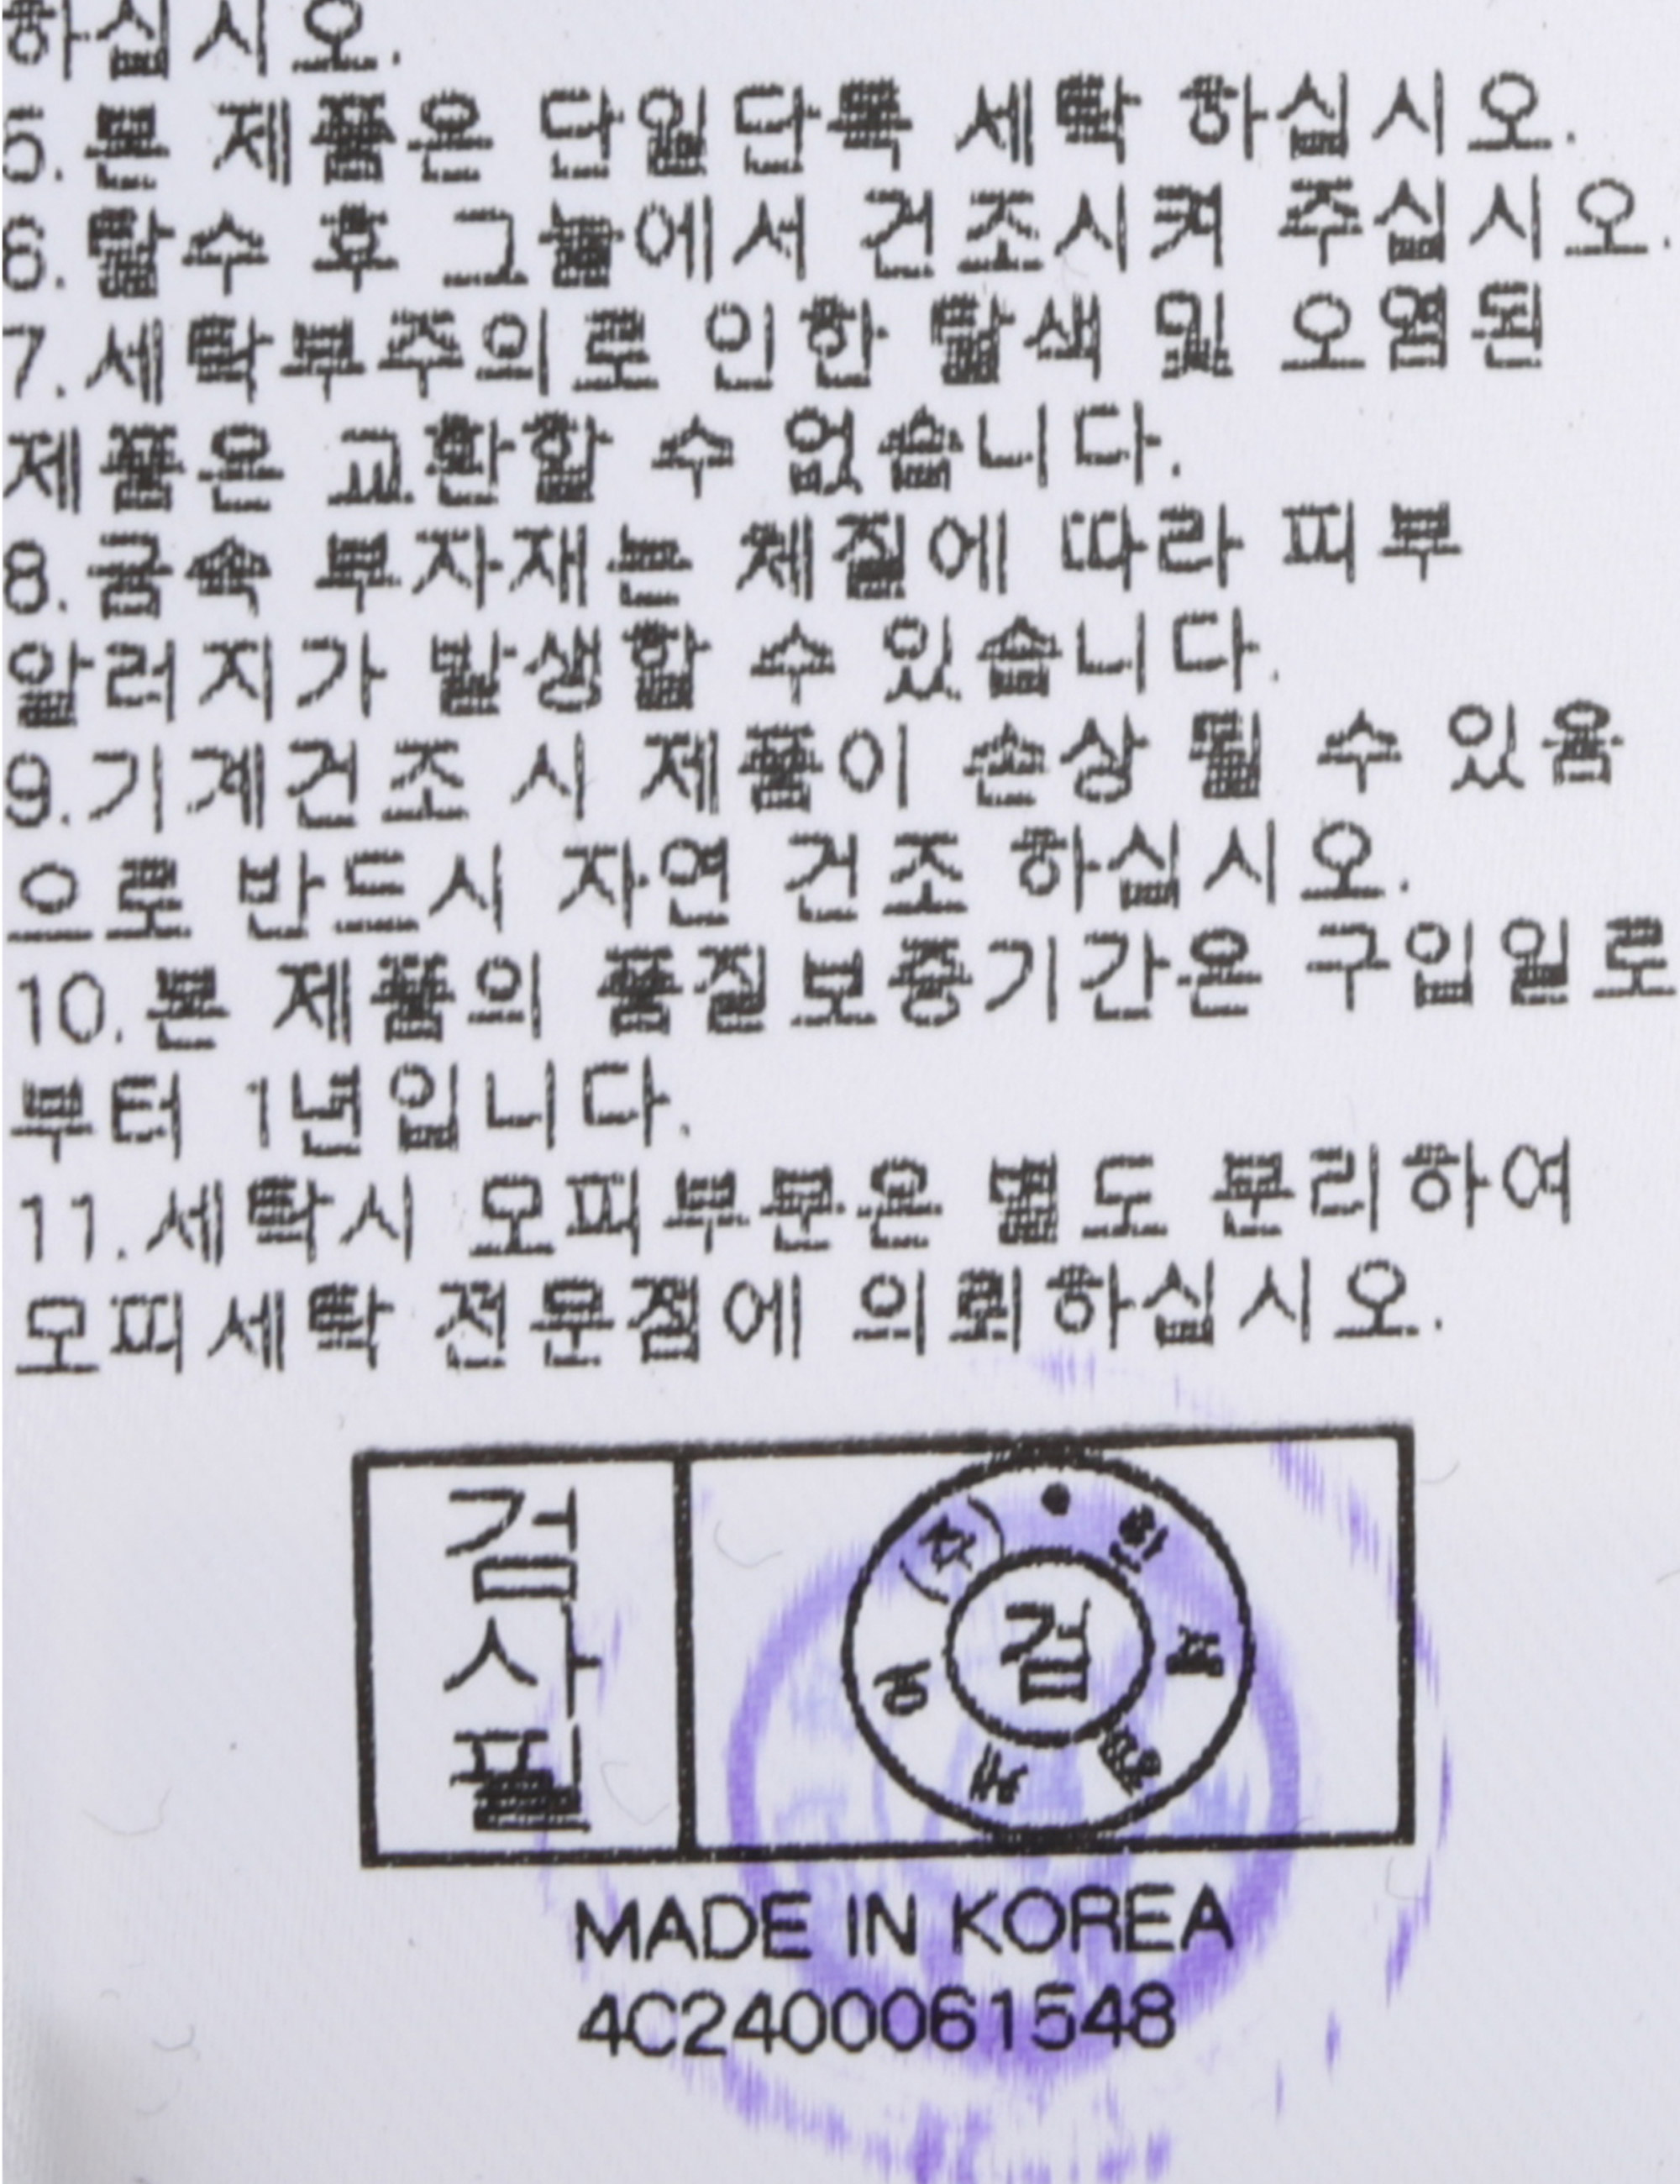 하십시오.
5.본 제품은 단일단독 세탁 하십시오.
6.탈수 후 그늘에서 건조시켜 주십시오.
7.세탁부주의로 인한 탈색 및 오염된
제품은 교환할 수 없습니다.
8.금속 부자재는 체질에 따라 피부
알러지가 발생할 수 있습니다.
9.기계건조 시 제품이 손상 될 수 있음
으로 반드시 자연 건조 하십시오.
10.본 제품의 품질보증기간은 구입일로
부터 1년입니다.
11.세탁시 모피부분은 별도 분리하여
모피세탁 전문점에 의뢰하십시오.
검
사
필
검
MADE IN KOREA
4C2400061548